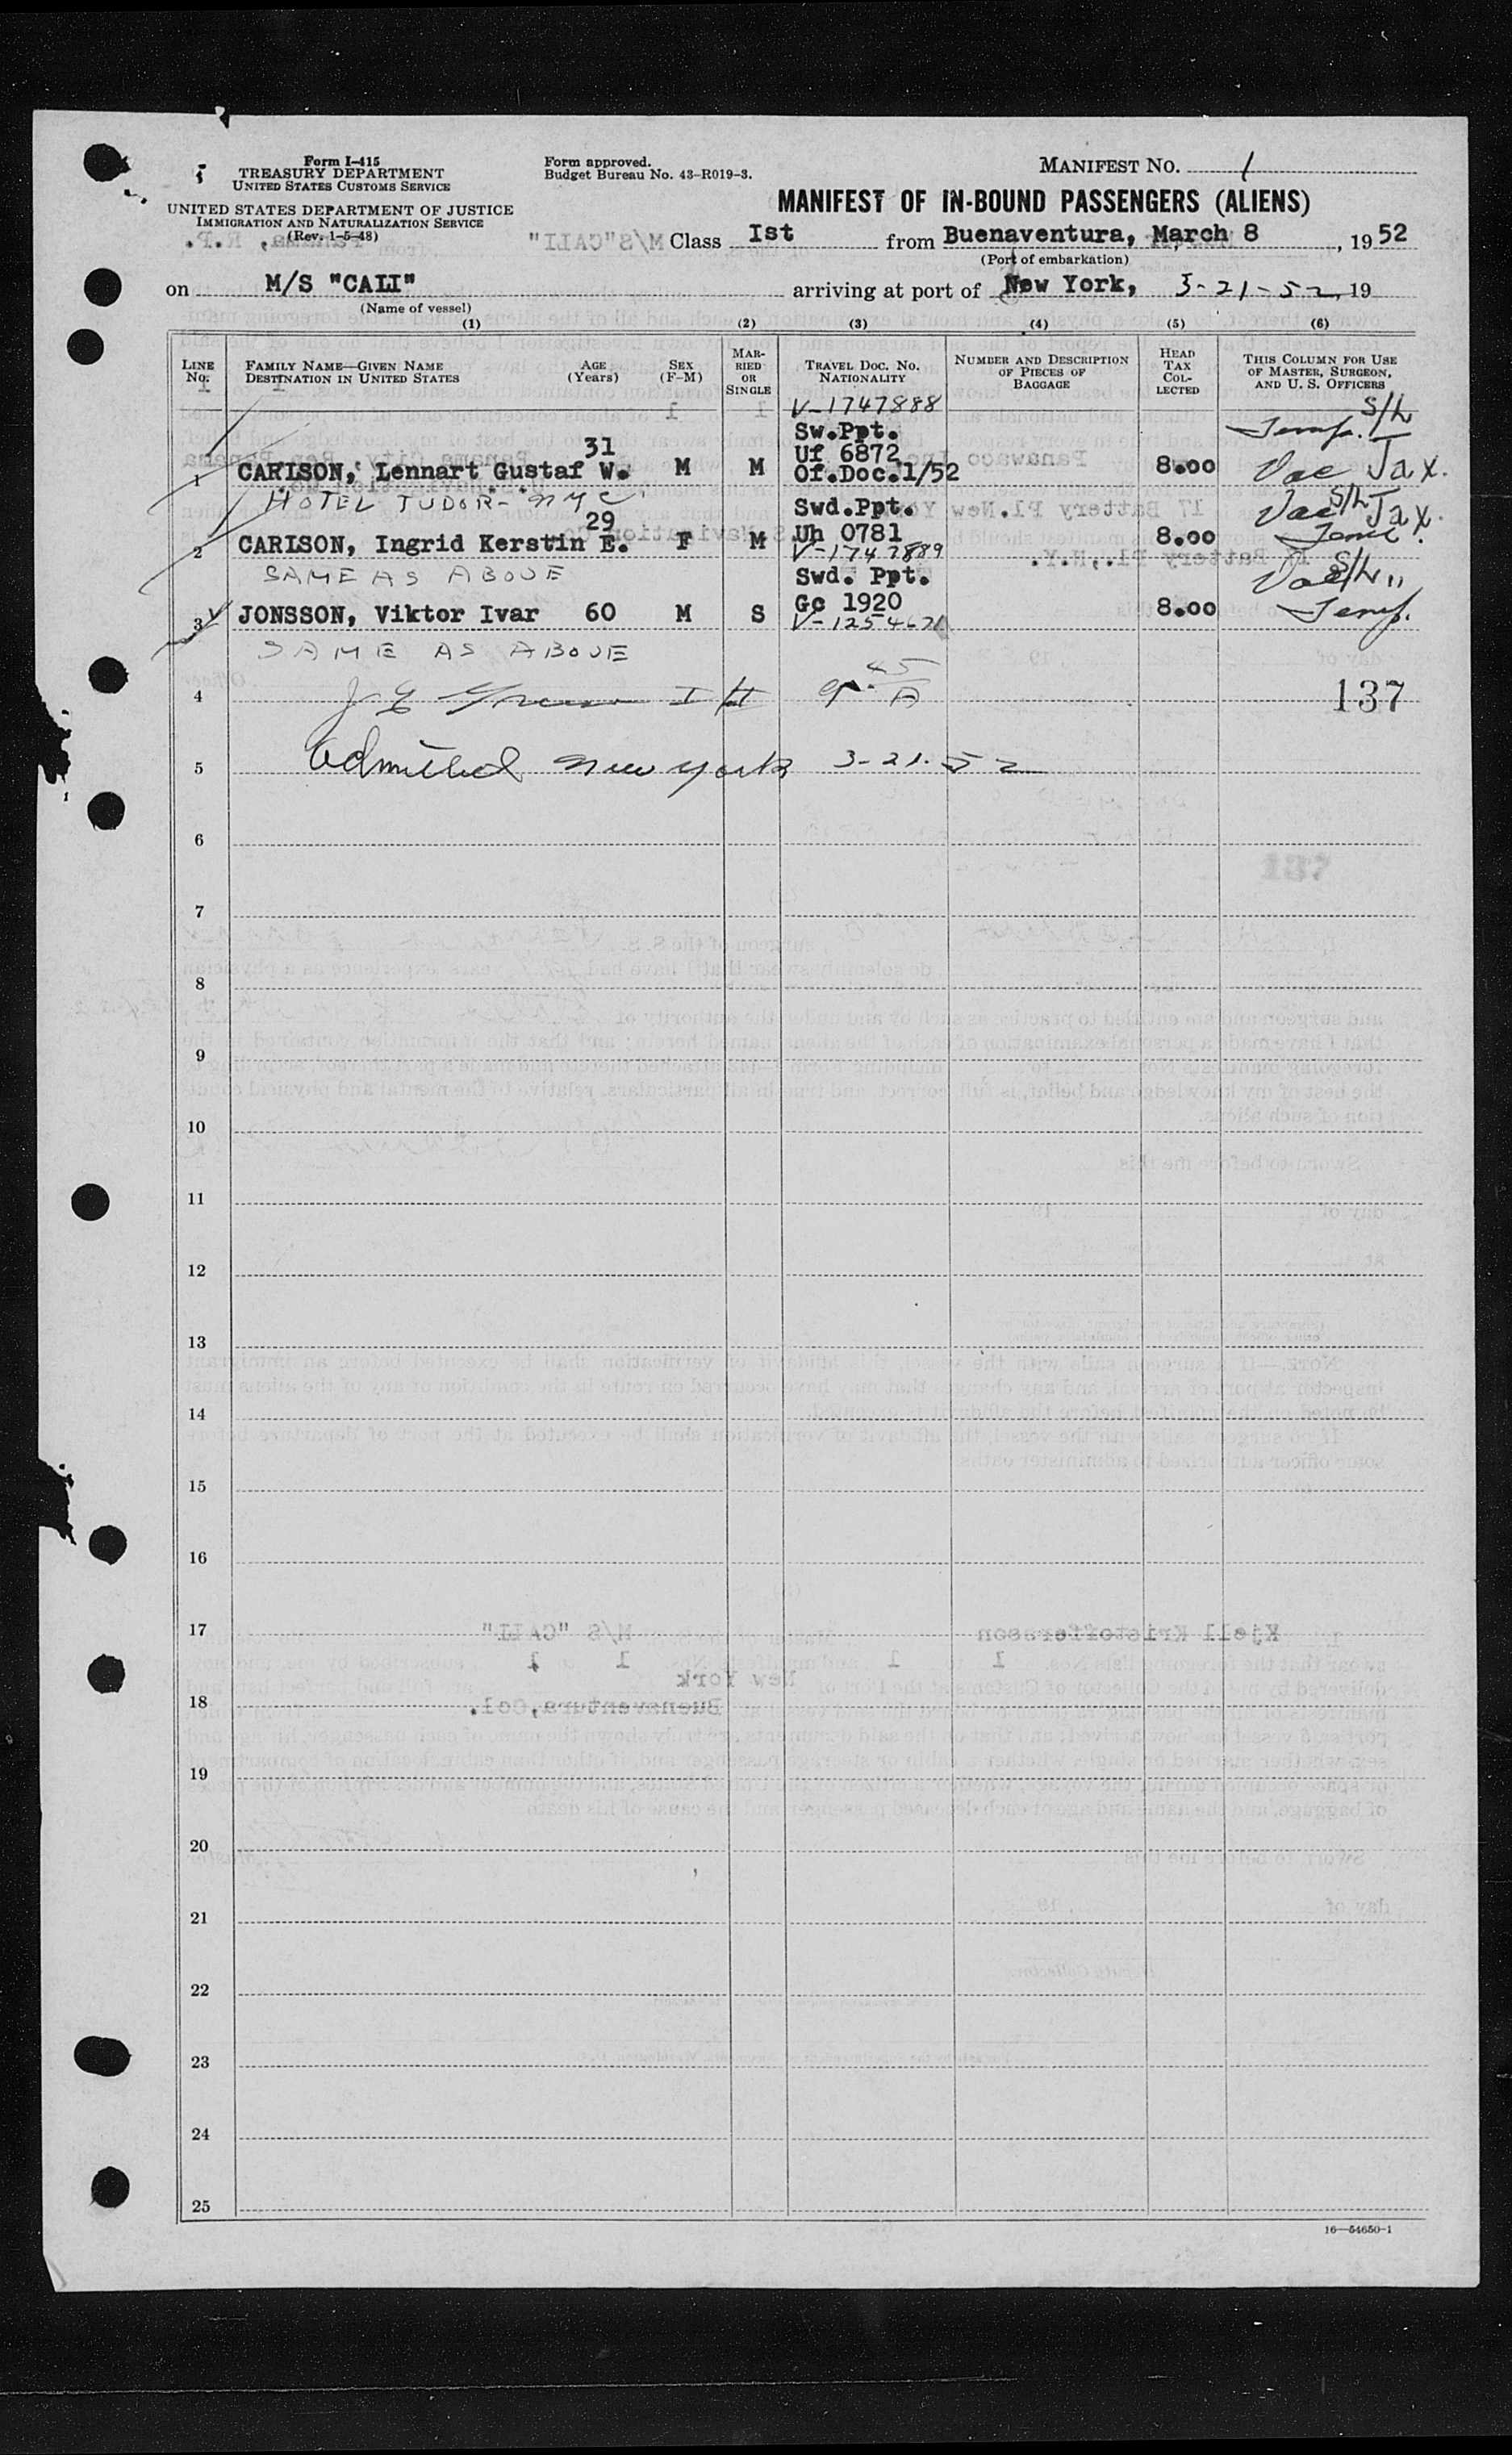 Form I-415
TREASURY DEPARTMENT
UNITED STATES CUSTOMS SERVICE
UNITED STATES DEPARTMENT OF JUSTICE
IMMIGRATION AND NATURALIZATION SERVICE
(Rev. 1-5-48)
Form approved.
Budget Bureau No. 43-R019-3.
MANIFEST NO. 1
MANIFEST OF IN-BOUND PASSENGERS (ALIENS)
Class Ist from Buenaventura, March 8, 1952
(Port of embarkation)
on M/S "CALI" arriving at port of New York, 3-21-52, 19
(Name of vessel)
(1) (2) (3) (4) (5) (6)
LINE No. FAMILY NAME—GIVEN NAME DESTINATION IN UNITED STATES AGE (Years) SEX (F-M) MARRIED OR SINGLE TRAVEL DOC. NO. NATIONALITY NUMBER AND DESCRIPTION OF PIECES OF BAGGAGE HEAD TAX COLLECTED THIS COLUMN FOR USE OF MASTER, SURGEON, AND U. S. OFFICERS
V-1747888 S/L
Sw.Ppt. Temp.
31 Uf 6872
1 CARLSON, Lennart Gustaf W. M M Of.Doc.1/52 8.00 Jax.
HOTEL TUDOR- NYC Swd.Ppt. S/L Jax.
29 Uh 0781
2 CARLSON, Ingrid Kerstin E. F M V-1747889 8.00
SAME AS ABOVE Swd. Ppt. S/L "
3 JONSSON, Viktor Ivar 60 M S Gc 1920 8.00 Temp.
V-1254671
SAME AS ABOVE
4 137
5 Admitted New York 3-21-52
6
7
8
9
10
11
12
13
14
15
16
17
18
19
20
21
22
23
24
25
16—54650-1